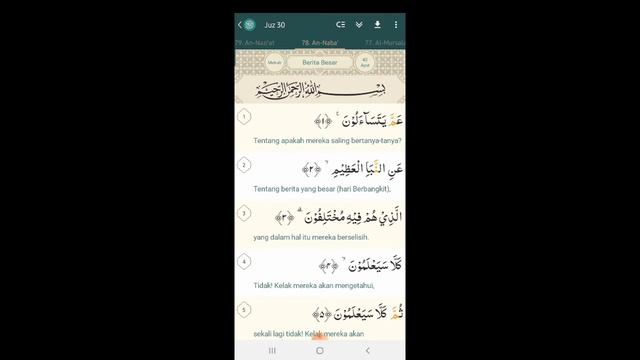 Juz 30
79. An-Nazi'at 78. An-Naba' 77. Al-Mursala
Mekah Berita Besar 40 Ayat
بِسْمِ اللّٰهِ الرَّحْمٰنِ الرَّحِيْمِ
1
عَمَّ يَتَسَاۤءَلُوْنَۚ ﴿١﴾
Tentang apakah mereka saling bertanya-tanya?
2
عَنِ النَّبَاِ الْعَظِيْمِۙ ﴿٢﴾
Tentang berita yang besar (hari Berbangkit),
3
الَّذِيْ هُمْ فِيْهِ مُخْتَلِفُوْنَۗ ﴿٣﴾
yang dalam hal itu mereka berselisih.
4
كَلَّا سَيَعْلَمُوْنَۙ ﴿٤﴾
Tidak! Kelak mereka akan mengetahui,
5
ثُمَّ كَلَّا سَيَعْلَمُوْنَ ﴿٥﴾
sekali lagi tidak! Kelak mereka akan